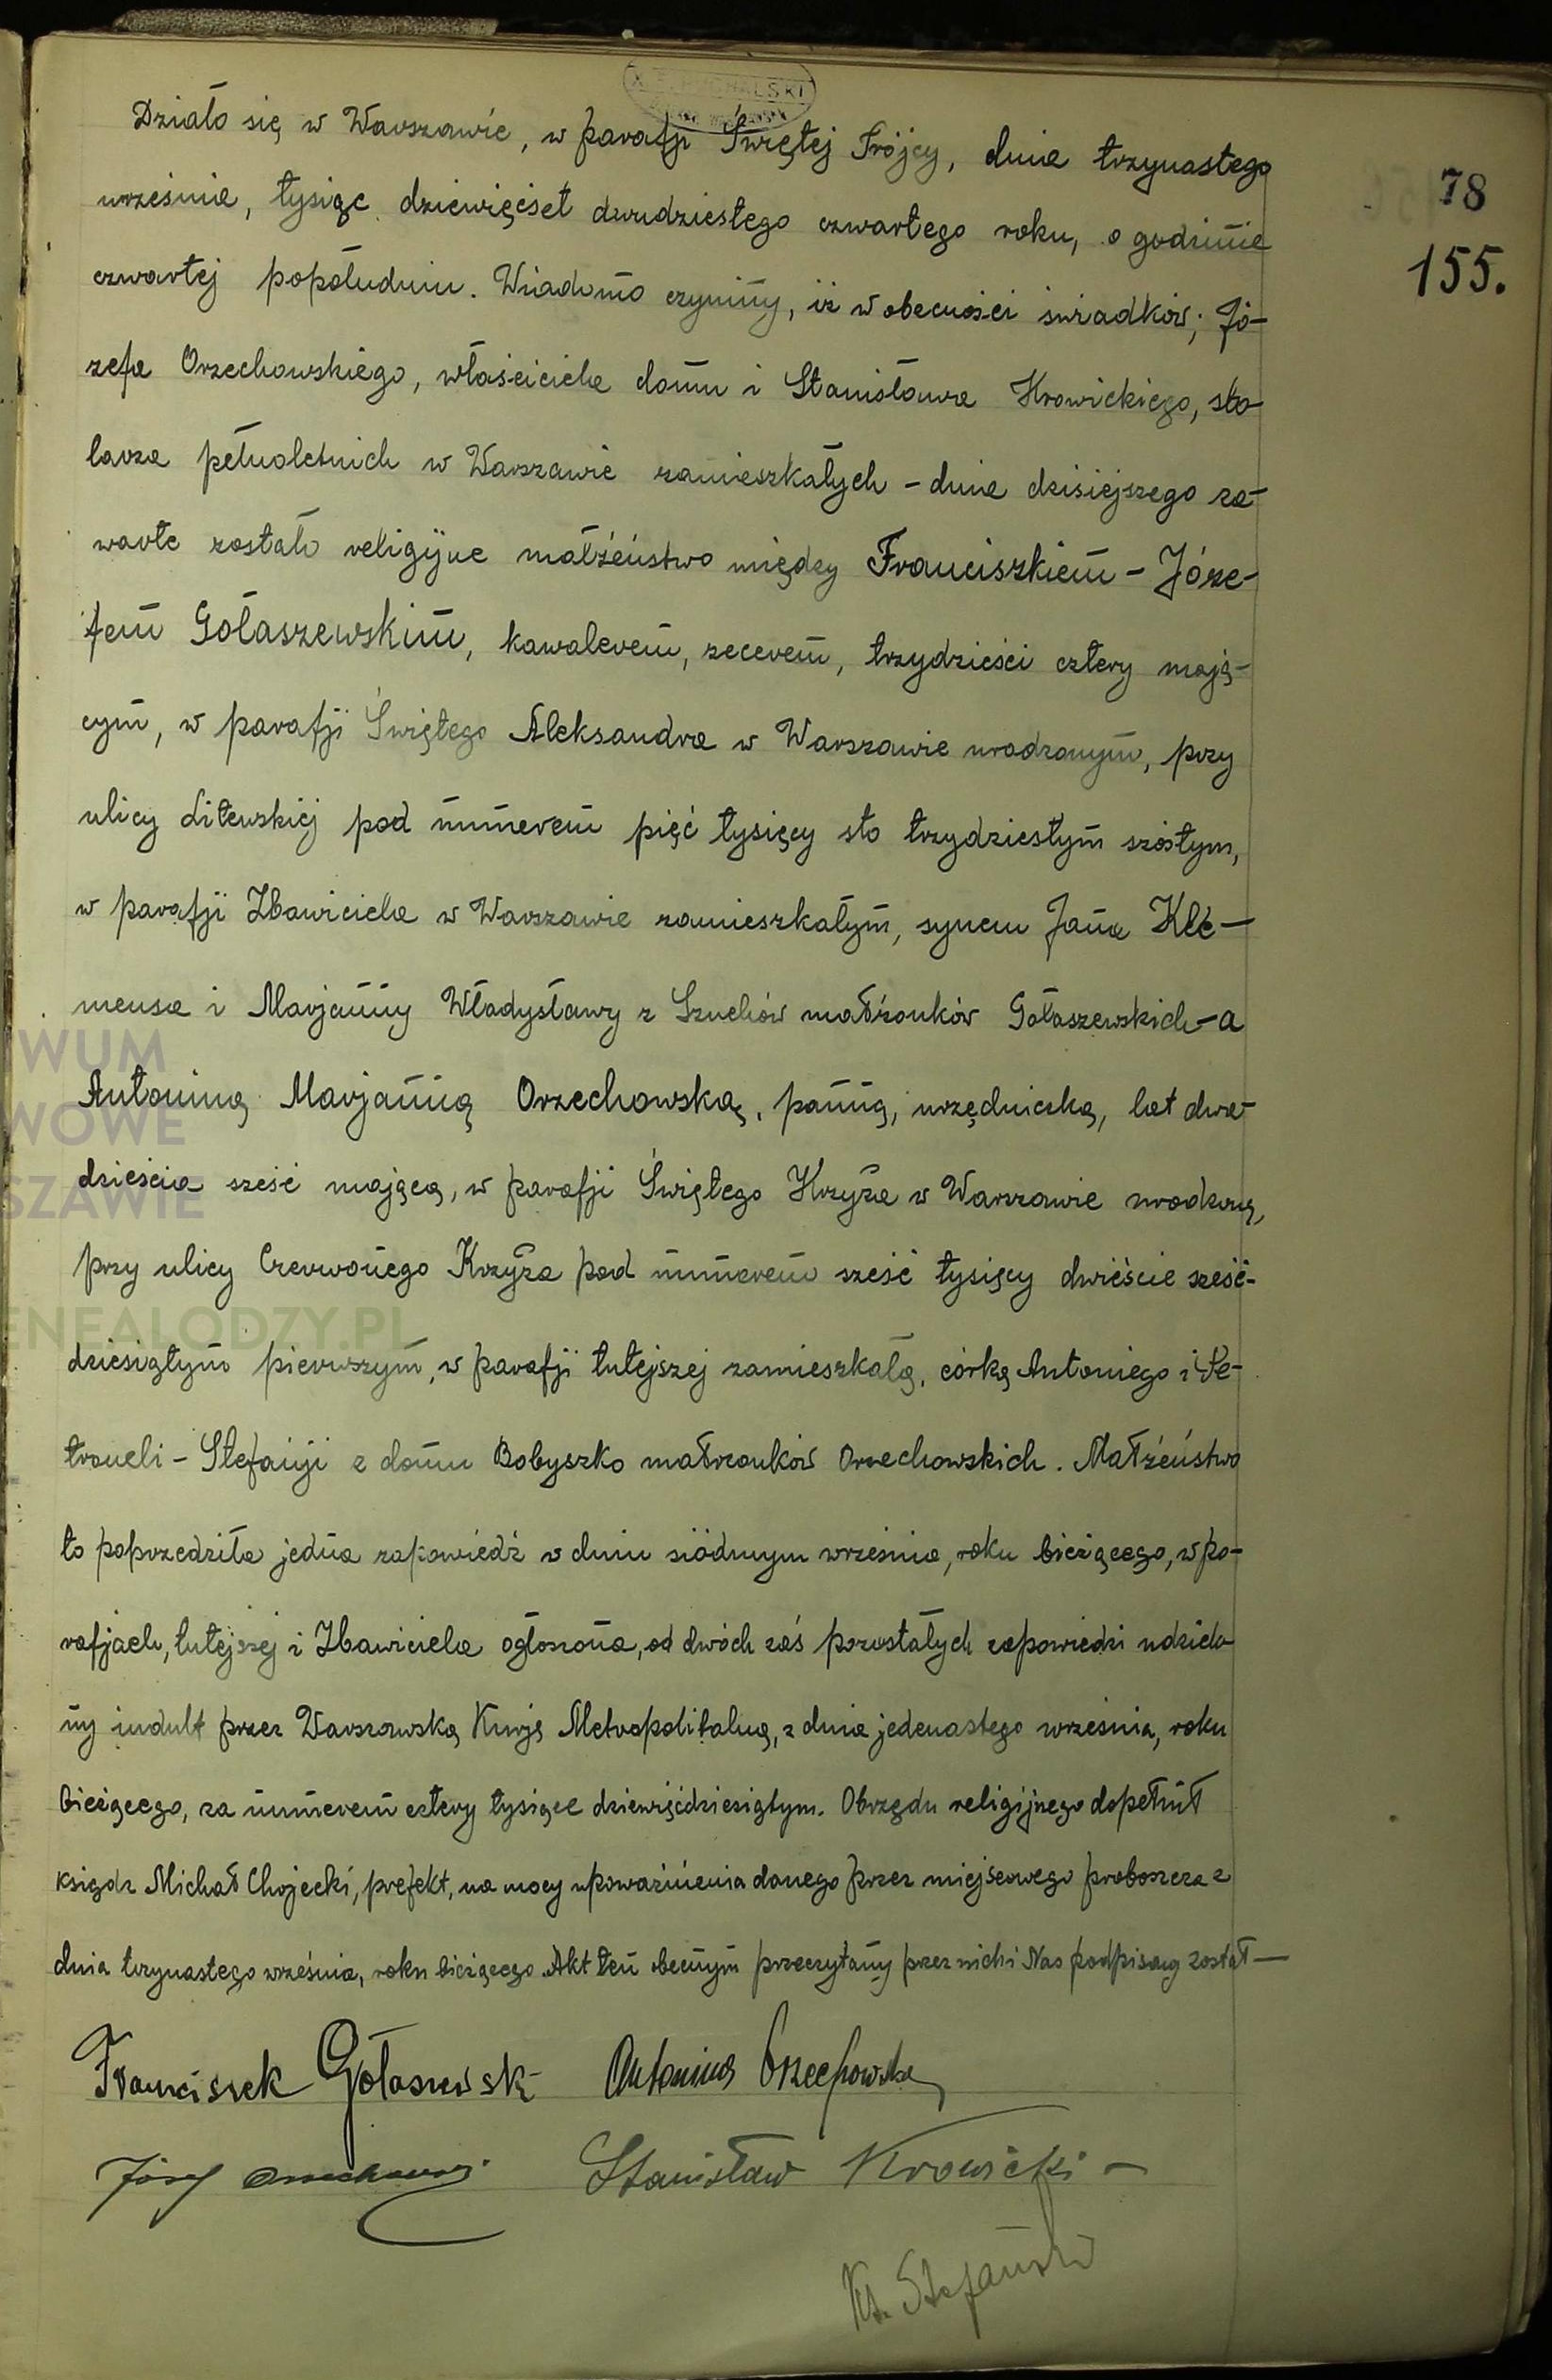 Działo się w Warszawie, w parafji Świętej Trójcy, dnia trzynastego
września, tysiąc dziewięćset dwudziestego czwartego roku, o godzinie
czwartej popołudniu. Wiadomo czynimy, iż w obecności świadków; Jó-
zefa Orzechowskiego, właściciela domu i Stanisława Krowickiego, sto-
larza pełnoletnich w Warszawie zamieszkałych – dnia dzisiejszego za-
warte zostało religijne małżeństwo między Franciszkiem – Józe-
fem Gołaszewskim, kawalerem, zecerem, trzydzieści cztery mają-
cym, w parafji Świętego Aleksandra w Warszawie urodzonym, przy
ulicy Litewskiej pod numerem pięć tysięcy sto trzydziestym szóstym,
w parafji Zbawiciela w Warszawie zamieszkałym, synem Jana Kle-
mensa i Marjanny Władysławy z Szuchów małżonków Gołaszewskich – a
Antoniną Marjanną Orzechowską, panną, urzędniczką, lat dwa-
dzieścia sześć mającą, w parafji Świętego Krzyża w Warszawie urodzoną,
przy ulicy Czerwonego Krzyża pod numerem sześć tysięcy dwieście sześć-
dziesiątym pierwszym, w parafji tutejszej zamieszkałą, córką Antoniego i Pe-
troneli – Stefanji z domu Bobyszko małżonków Orzechowskich. Małżeństwo
to poprzedziła jedna zapowiedź w dniu siódmym września, roku bieżącego, w pa-
rafjach, tutejszej i Zbawiciela ogłoszona, od dwóch zaś pozostałych zapowiedzi udzielo
ny indult przez Warszawską Kurję Metropolitalną, z dnia jedenastego września, roku
bieżącego, za numerem cztery tysiące dziewięćdziesiątym. Obrzędu religijnego dopełnił
ksiądz Michał Chojecki, prefekt, na mocy upoważnienia danego przez miejscowego proboszcza z
dnia trzynastego września, roku bieżącego. Akt ten obecnym przeczytany przez nich i Nas podpisany został —
Franciszek Gołaszewski Antonina Orzechowska
Józef Orzechowski Stanisław Krowicki –
Ks. Stefański
78
155.
WUM
WOWE
SZAWIE
ENEALODZY.PL